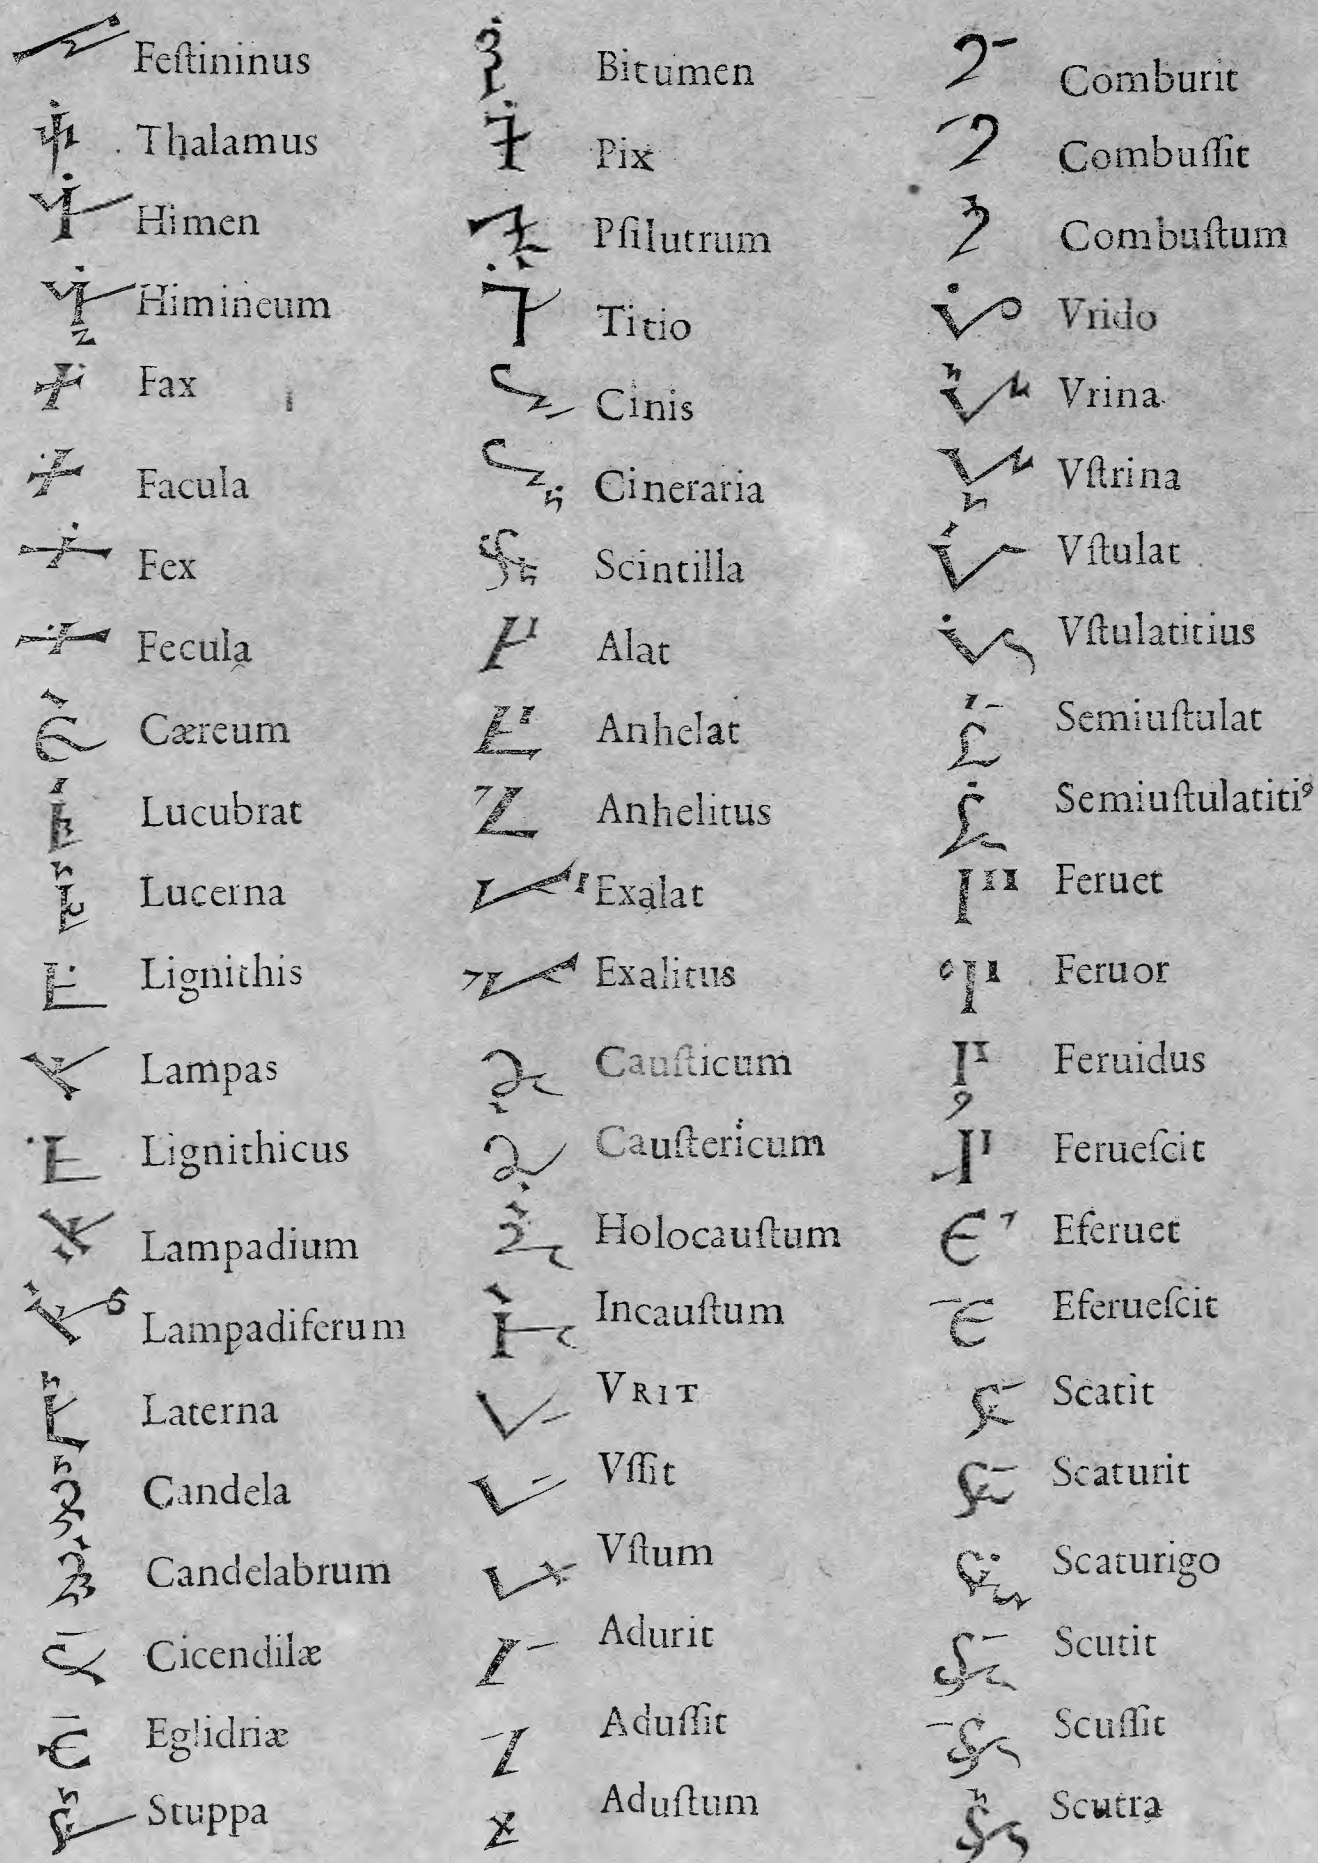 Feſtininus
Thalamus
Himen
Himineum
Fax
Facula
Fex
Fecula
Cæreum
Lucubrat
Lucerna
Lignithis
Lampas
Lignithicus
Lampadium
Lampadiferum
Laterna
Candela
Candelabrum
Cicendilæ
Eglidriæ
Stuppa
Bitumen
Pix
Pſilutrum
Titio
Cinis
Cineraria
Scintilla
Alat
Anhelat
Anhelitus
Exalat
Exalitus
Cauſticum
Cauſtericum
Holocauſtum
Incauſtum
VRIT
Vſſit
Vſtum
Adurit
Aduſſit
Aduſtum
Comburit
Combuſſit
Combuſtum
Vrido
Vrina
Vſtrina
Vſtulat
Vſtulatitius
Semiuſtulat
Semiuſtulatitiꝰ
Feruet
Feruor
Feruidus
Ferueſcit
Eferuet
Eferueſcit
Scatit
Scaturit
Scaturigo
Scutit
Scuſſit
Scutra